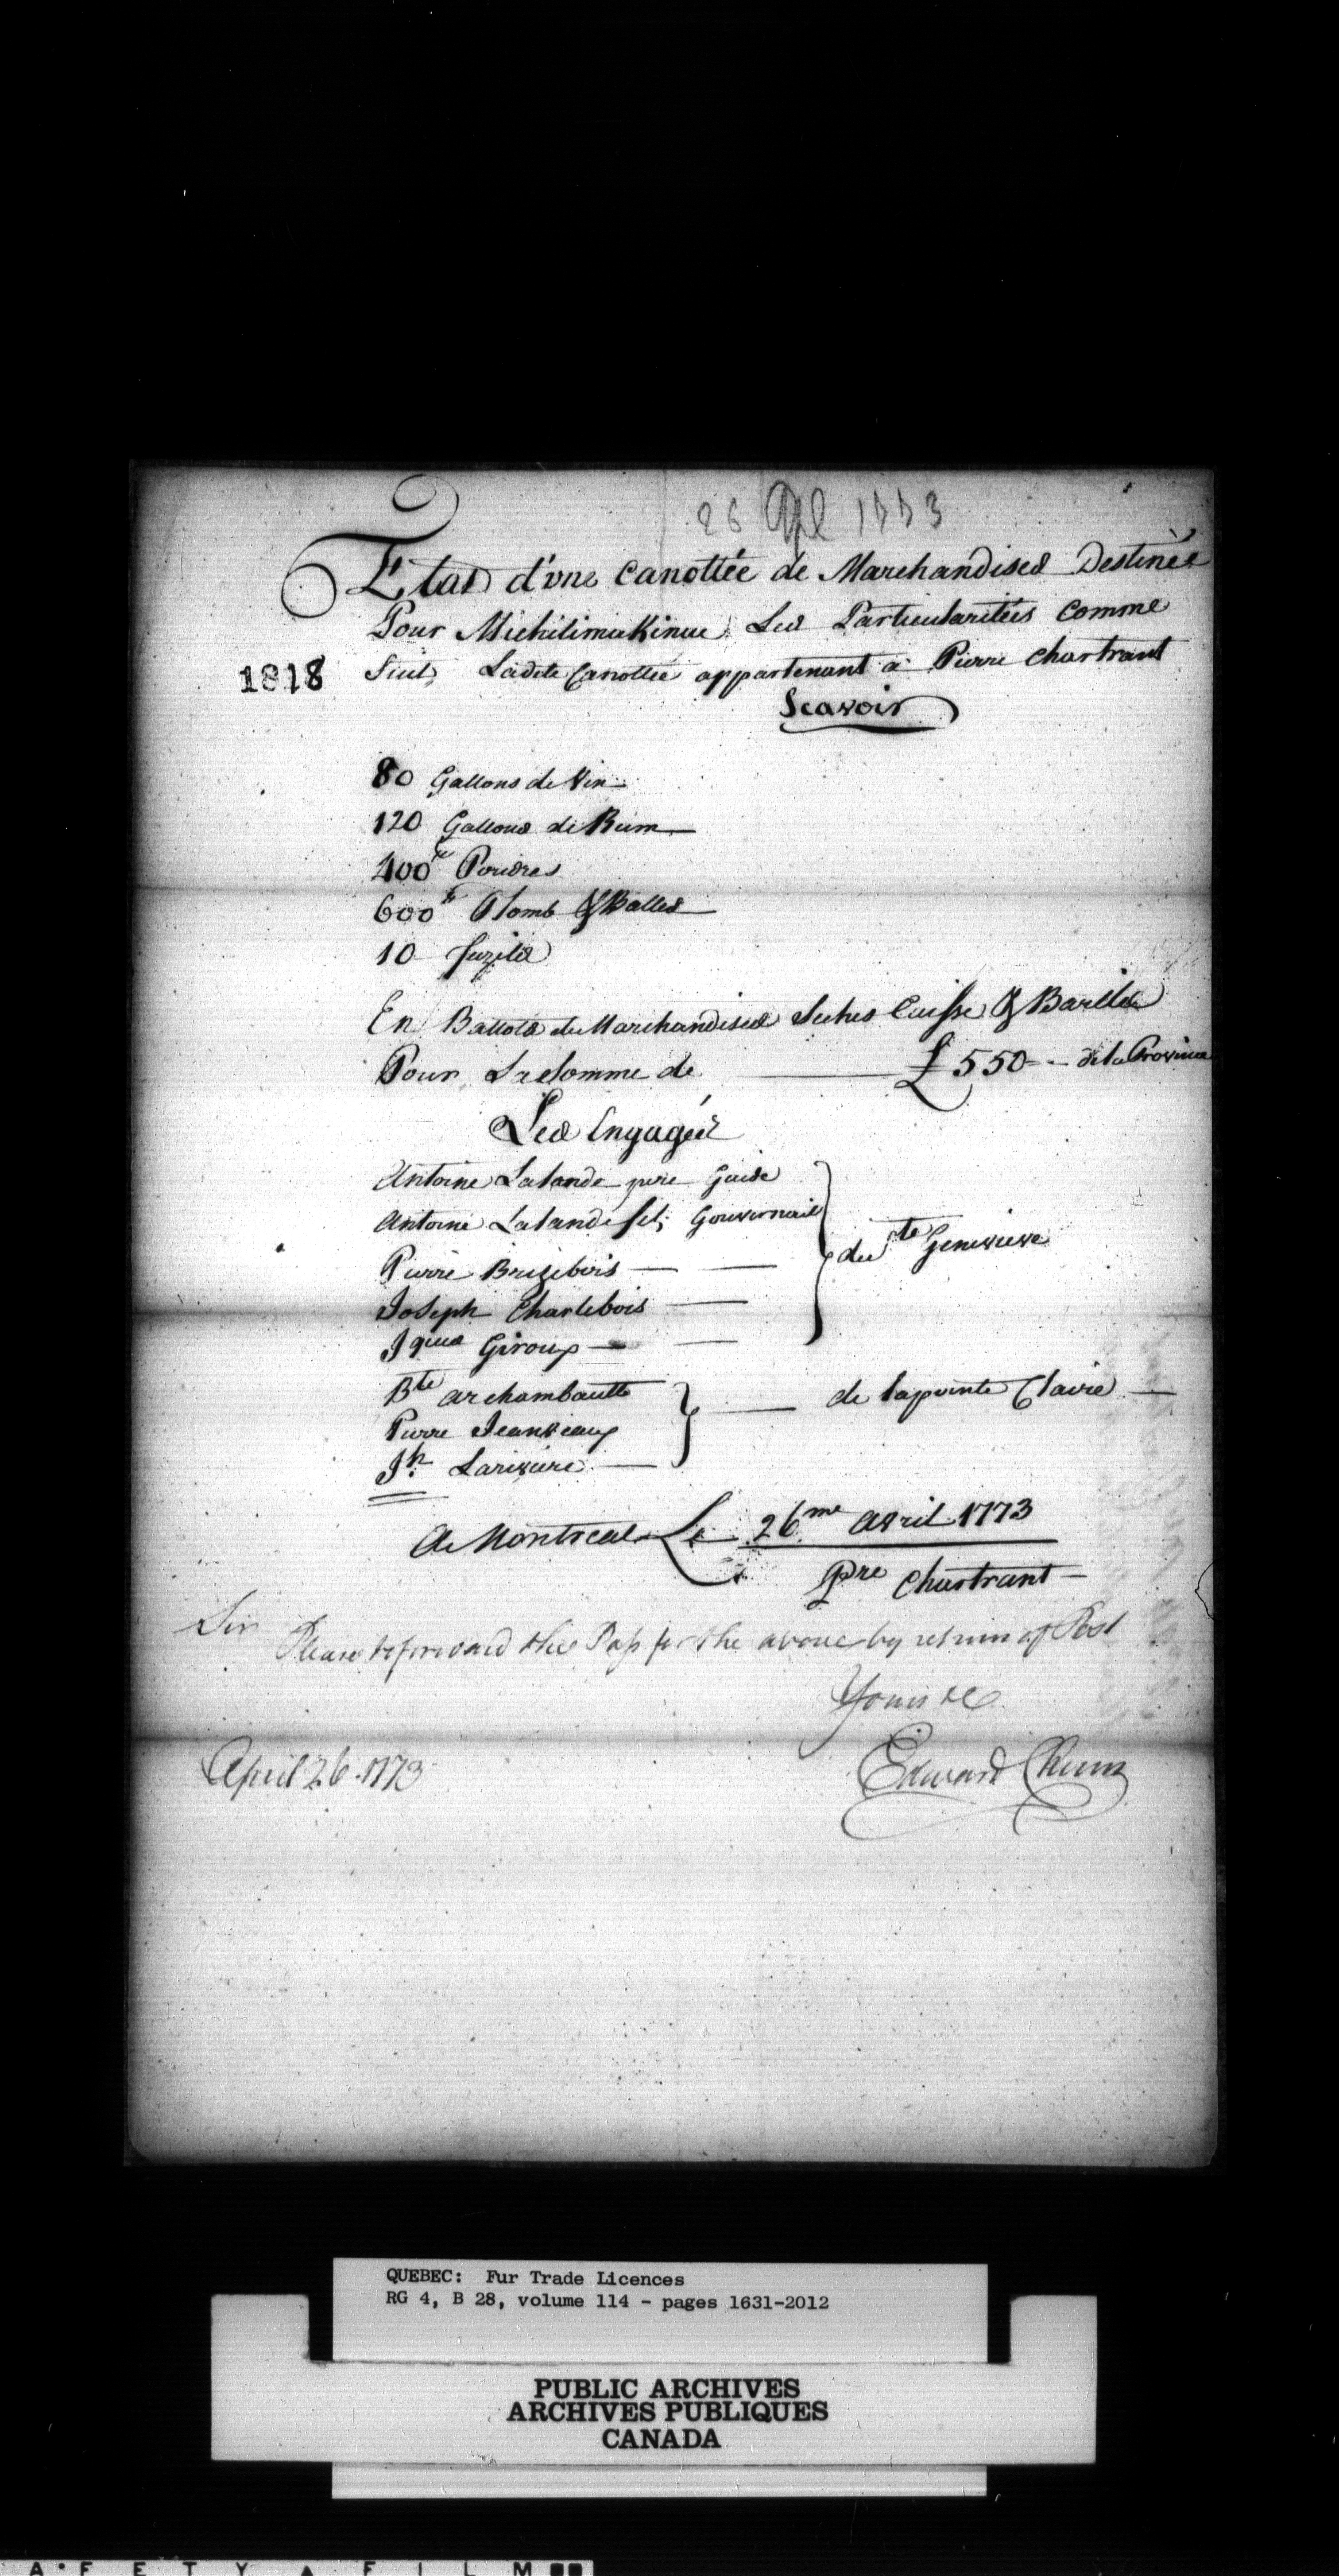 26 Apl 1773
Etat d'une Canottée de Marchandises Destinée
Pour Michilimakinac Les Particularitées Comme
1818
Suit Ladite Canottée appartenant a Pierre Chartrant
Scavoir
80 Gallons de Vin
120 Gallons de Rum
400 lb Poudres
600 lb Plomb & Balles
10 fuzils
En Ballots de Marchandises Seches Caisse & Barils
Pour La Somme de £ 550 - - de la Province
Les Engagés
Antoine Lalande pere Guide
Antoine Lalande fils Gouvernail
du Ste Genevieve
Pierre Brizebois
Joseph Charlebois
Jques Giroux
Bte archambault
de lapointe Claire
Pierre Jeanveau
Jh Lariviere
A Montreal Le 26me avril 1773
Pre Chartrant
Sir
Please to forward the Pass for the above by return of Post
Yours &c
April 26 1773
Edward Chinn
QUEBEC: Fur Trade Licences
RG 4, B 28, volume 114 - pages 1631-2012
PUBLIC ARCHIVES
ARCHIVES PUBLIQUES
CANADA
A • F E T Y ▲ F I L M